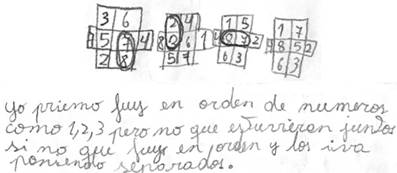 3 6 2 4 1 5 1 7
5 7 4 8 2 6 1 4 8 7 2 8 5 2
2 8 5 7 6 3 6 3
yo priemo fuy en orden de numeros
como 1,2,3 pero no que estuvieran juntos
si no que fuy en orden y los iva
poniendo separados.